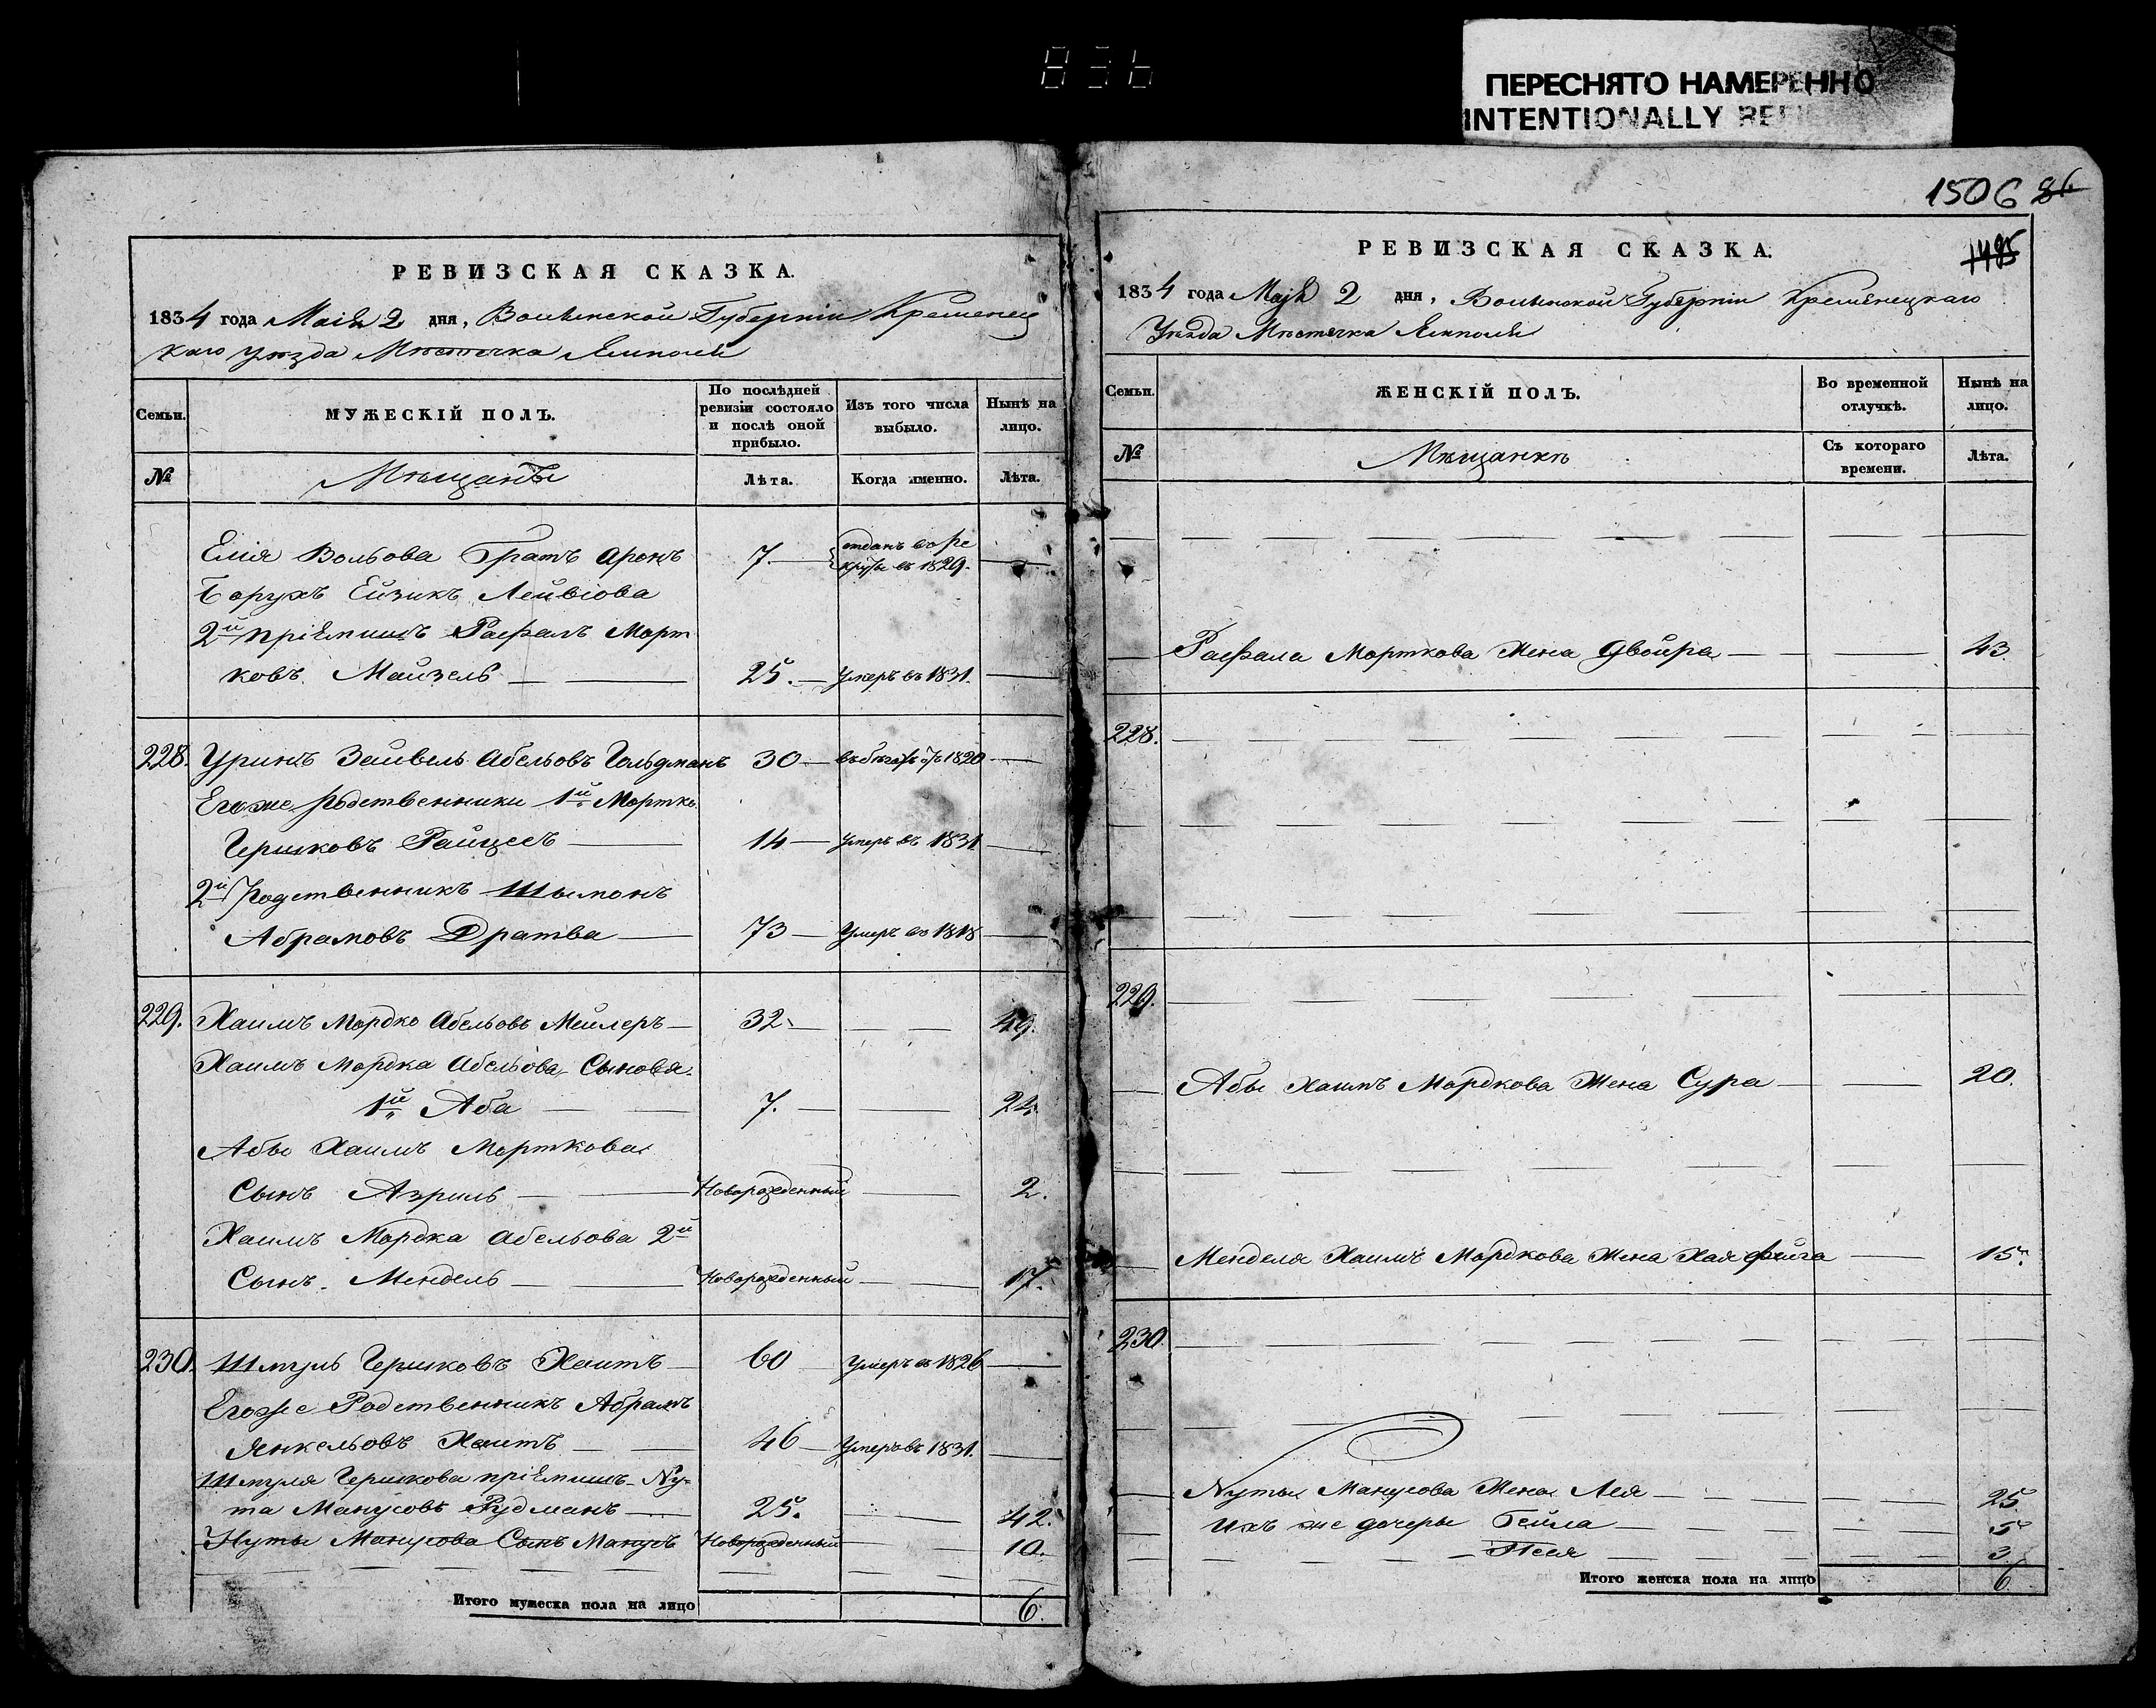 836
ПЕРЕСНЯТО НАМЕРЕННО
INTENTIONALLY
1506 86
1495
РЕВИЗСКАЯ СКАЗКА.
1834 года Маія 2 дня, Волынской Губерніи Кременец
каго уѣзда Мѣстечка Ямполя
Семьи.
МУЖЕСКІЙ ПОЛЪ.
По послѣдней ревизіи состояло и послѣ оной прибыло.
Изъ того числа выбыло.
Нынѣ на лицо.
№
Мѣщанъ
Лѣта.
Когда именно.
Лѣта.
Елія Вольова Братъ Аронъ 7. отданъ въ ре
Борухъ Ейзикъ Лейвіова круты въ 1829.
2й пріемишъ Рафалъ Морт
ковъ Майзель 25. Умеръ въ 1831.
228. Уринъ Зейвель Абельовъ Гольдманъ 30 въ бѣгахъ 1820
Егоже родственники 1й Мортко
Гершковъ Райцесъ 14 умеръ въ 1831
2й Родственникъ Шымонъ
Абрамовъ Дратва 73 Умеръ въ 1818
229. Хаимъ Мордко Абельовъ Мейлеръ 32 49.
Хаимъ Мордка Абельова Сыновя
1й Аба 7. 24
Абы Хаимъ Морткова
Сынъ Азриль Новорожденный 2.
Хаимъ Мордка Абельова 2й
Сынъ Мендель Новорожденный 17.
230. Шмуль Гершковъ Хаитъ 60 Умеръ въ 1826
Егоже Родственникъ Абрамъ
Янкельовъ Хаитъ 46 Умеръ въ 1831.
Шмуля Гершкова пріемишъ Ну-
та Манусовъ Рудманъ 25. 42.
Нуты Манусова Сынъ Манусъ Новорожденный 10.
Итого мужеска пола на лицо 6.
РЕВИЗСКАЯ СКАЗКА.
1834 года Маія 2 дня, Волынской Губерніи Кременецкаго
Уѣзда Мѣстечка Ямполя
Семьи.
ЖЕНСКІЙ ПОЛЪ.
Во временной отлучкѣ.
Нынѣ на лицо.
№
Мѣщанкѣ
Съ котораго времени.
Лѣта.
Рафала Морткова Жена Двойра 43.
228.
229.
Абы Хаимъ Мордкова Жена Сура 20.
Менделя Хаимъ Мордкова Жена Хая Фейга 15.
230.
Нуты Манусова Жена Лея 25
Ихъ же дочеры Бейла 5
Песя 3.
Итого женска пола на лицо 6.